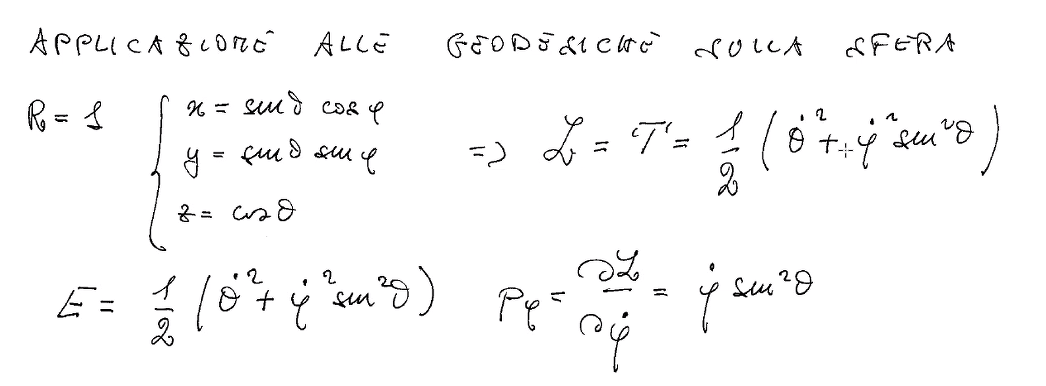 APPLICAZIONE ALLE GEODESICHE SULLA SFERA
R = 1 { x = sinθ cosφ
y = sinθ sinφ => ℒ = T = 1/2 (θ̇² + φ̇² sin²θ)
z = cosθ
E = 1/2 (θ̇² + φ̇² sin²θ) Pφ = ∂ℒ/∂φ̇ = φ̇ sin²θ